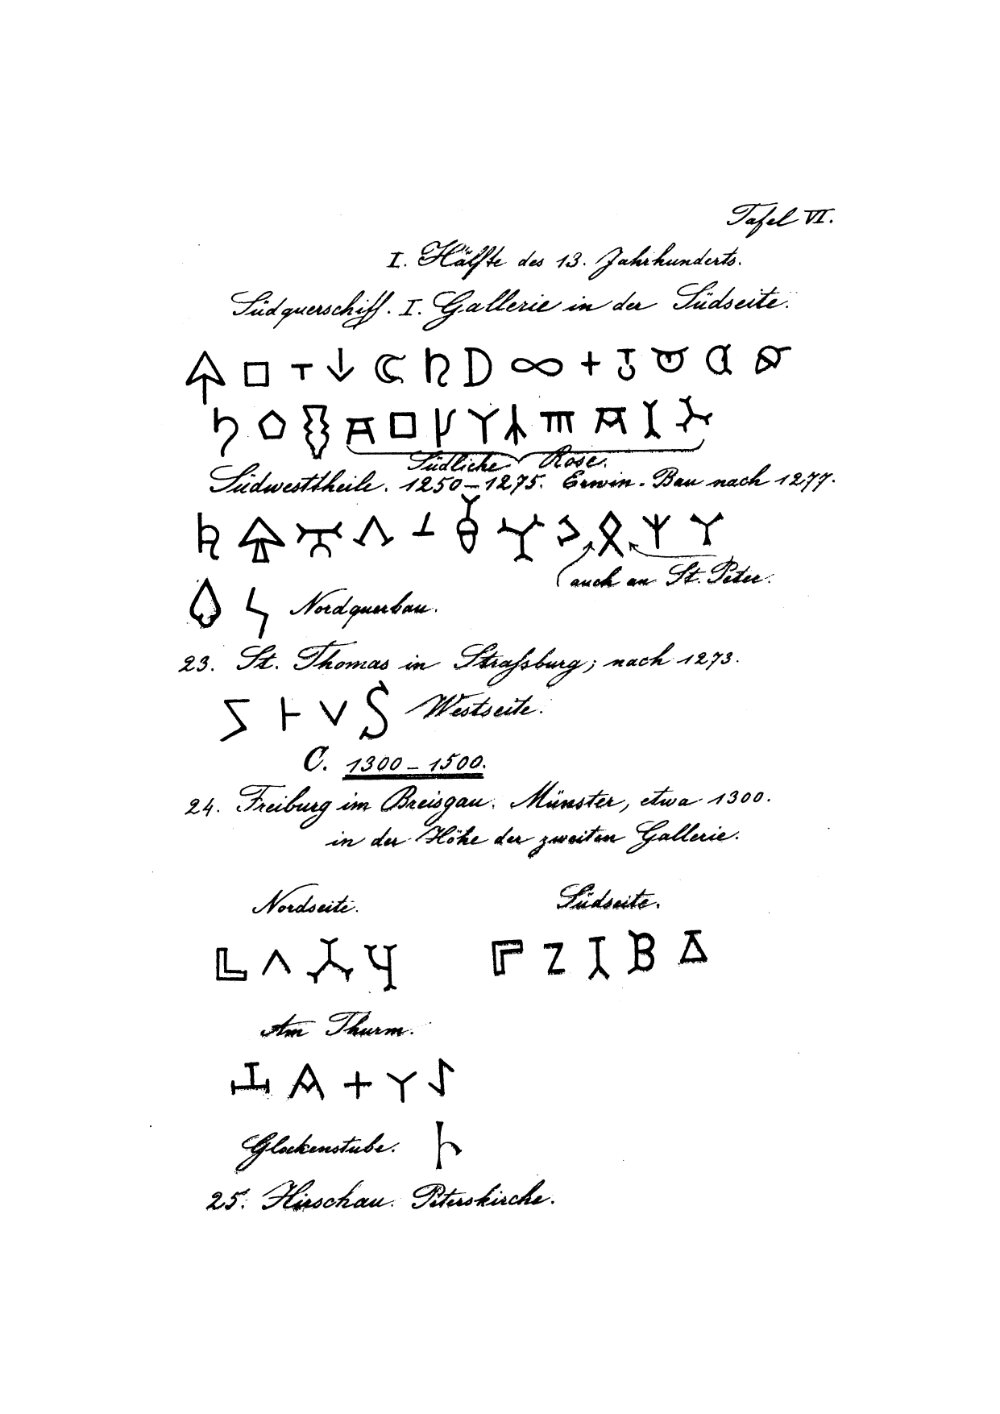 Tafel VI.
I. Hälfte des 13. Jahrhunderts.
Südquerschiff. I. Gallerie in der Südseite.
Südliche Rose.
Südwesttheile. 1250–1275. Erwin-Bau nach 1277.
auch an St. Peter.
Nordquerbau.
23. St. Thomas in Straßburg; nach 1273.
Westseite.
C. 1300–1500.
24. Freiburg im Breisgau. Münster, etwa 1300.
in der Höhe der zweiten Gallerie.
Nordseite. Südseite.
Am Thurm.
Glockenstube.
25. Hirschau. Peterskirche.